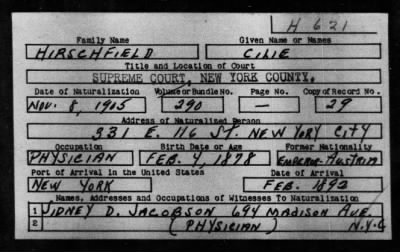 H 621
Family Name Given Name or Names
HIRSCHFIELD CILIE
Title and Location of Court
SUPREME COURT, NEW YORK COUNTY.
Date of Naturalization Volume or Bundle No. Page No. Copy of Record No.
NOV. 8, 1905 290 — 29
Address of Naturalized Person
331 E. 116 ST. NEW YORK CITY
Occupation Birth Date or Age Former Nationality
PHYSICIAN FEB. 4, 1878 EMPEROR-AUSTRIA
Port of Arrival in the United States Date of Arrival
NEW YORK FEB. 1892
Names, Addresses and Occupations of Witnesses To Naturalization
1 SIDNEY D. JACOBSON 694 MADISON AVE.
2 (PHYSICIAN) N.Y.C